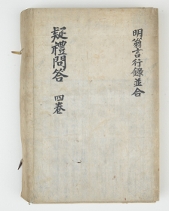 明翁言行錄並合
疑禮問答 四卷